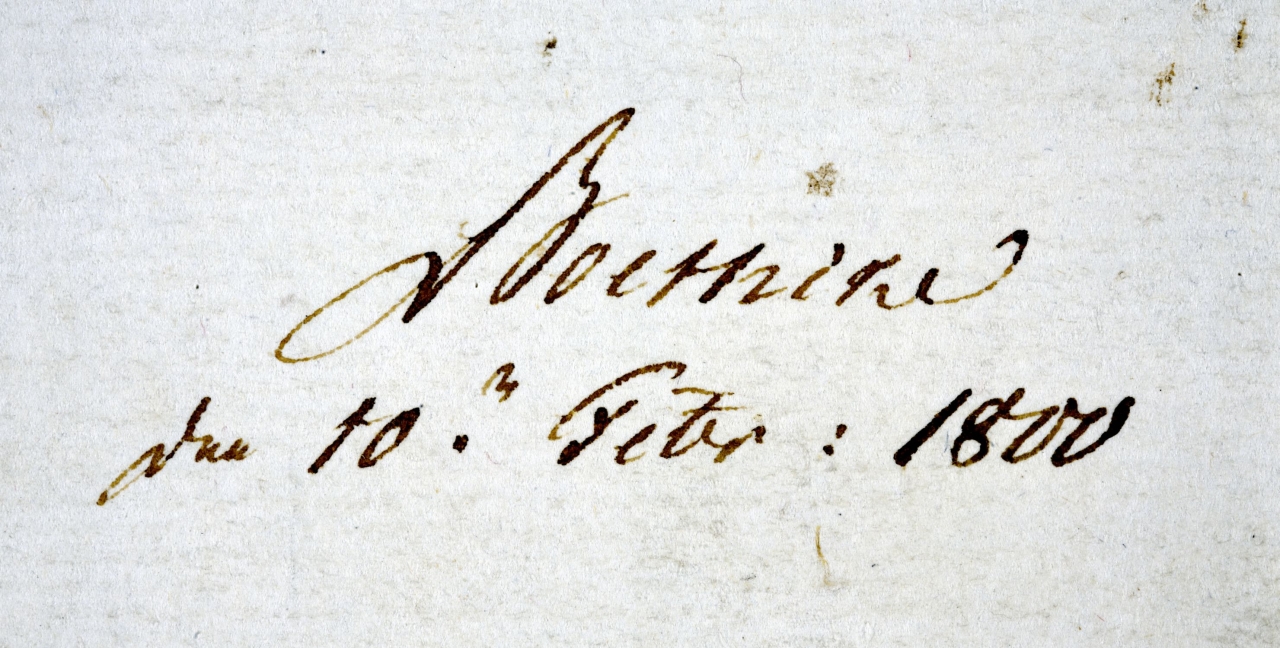 Boethike
den 10.n Febr: 1800